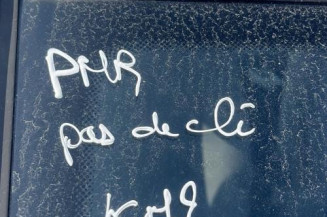 PMR
pas de clé